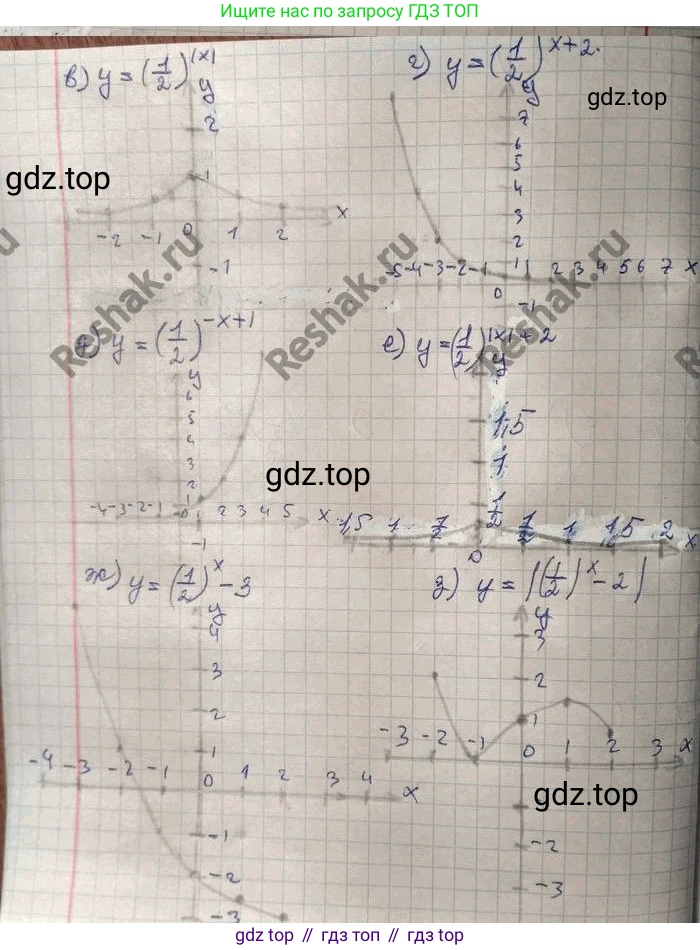 Ищите нас по запросу ГДЗ ТОП
в) y = (1/2)^|x|
г) y = (1/2)^x+2.
gdz.top
gdz.top
y
2
1
x
-2 -1 0 1 2
-1
y
7
6
5
4
3
2
1
-5 -4 -3 -2 -1 0 1 2 3 4 5 6 7 x
-1
Reshak.ru
Reshak.ru
Reshak.ru
y = (1/2)^-x+1
е) y = (1/2)^|x|+2
y
6
5
4
3
2
1
-4 -3 -2 -1 0 1 2 3 4 5 x
-1
gdz.top
y
1,5
1
1/2
1,5 1 1/2 0 1/2 1 1,5 2 x
ж) y = (1/2)^x - 3
з) y = |(1/2)^x - 2|
y
4
3
2
1
-4 -3 -2 -1 0 1 2 3 4 x
-1
-2
-3
y
3
2
1
-3 -2 -1 0 1 2 3 x
gdz.top
-2
-3
gdz.top // гдз.топ // гдз.top